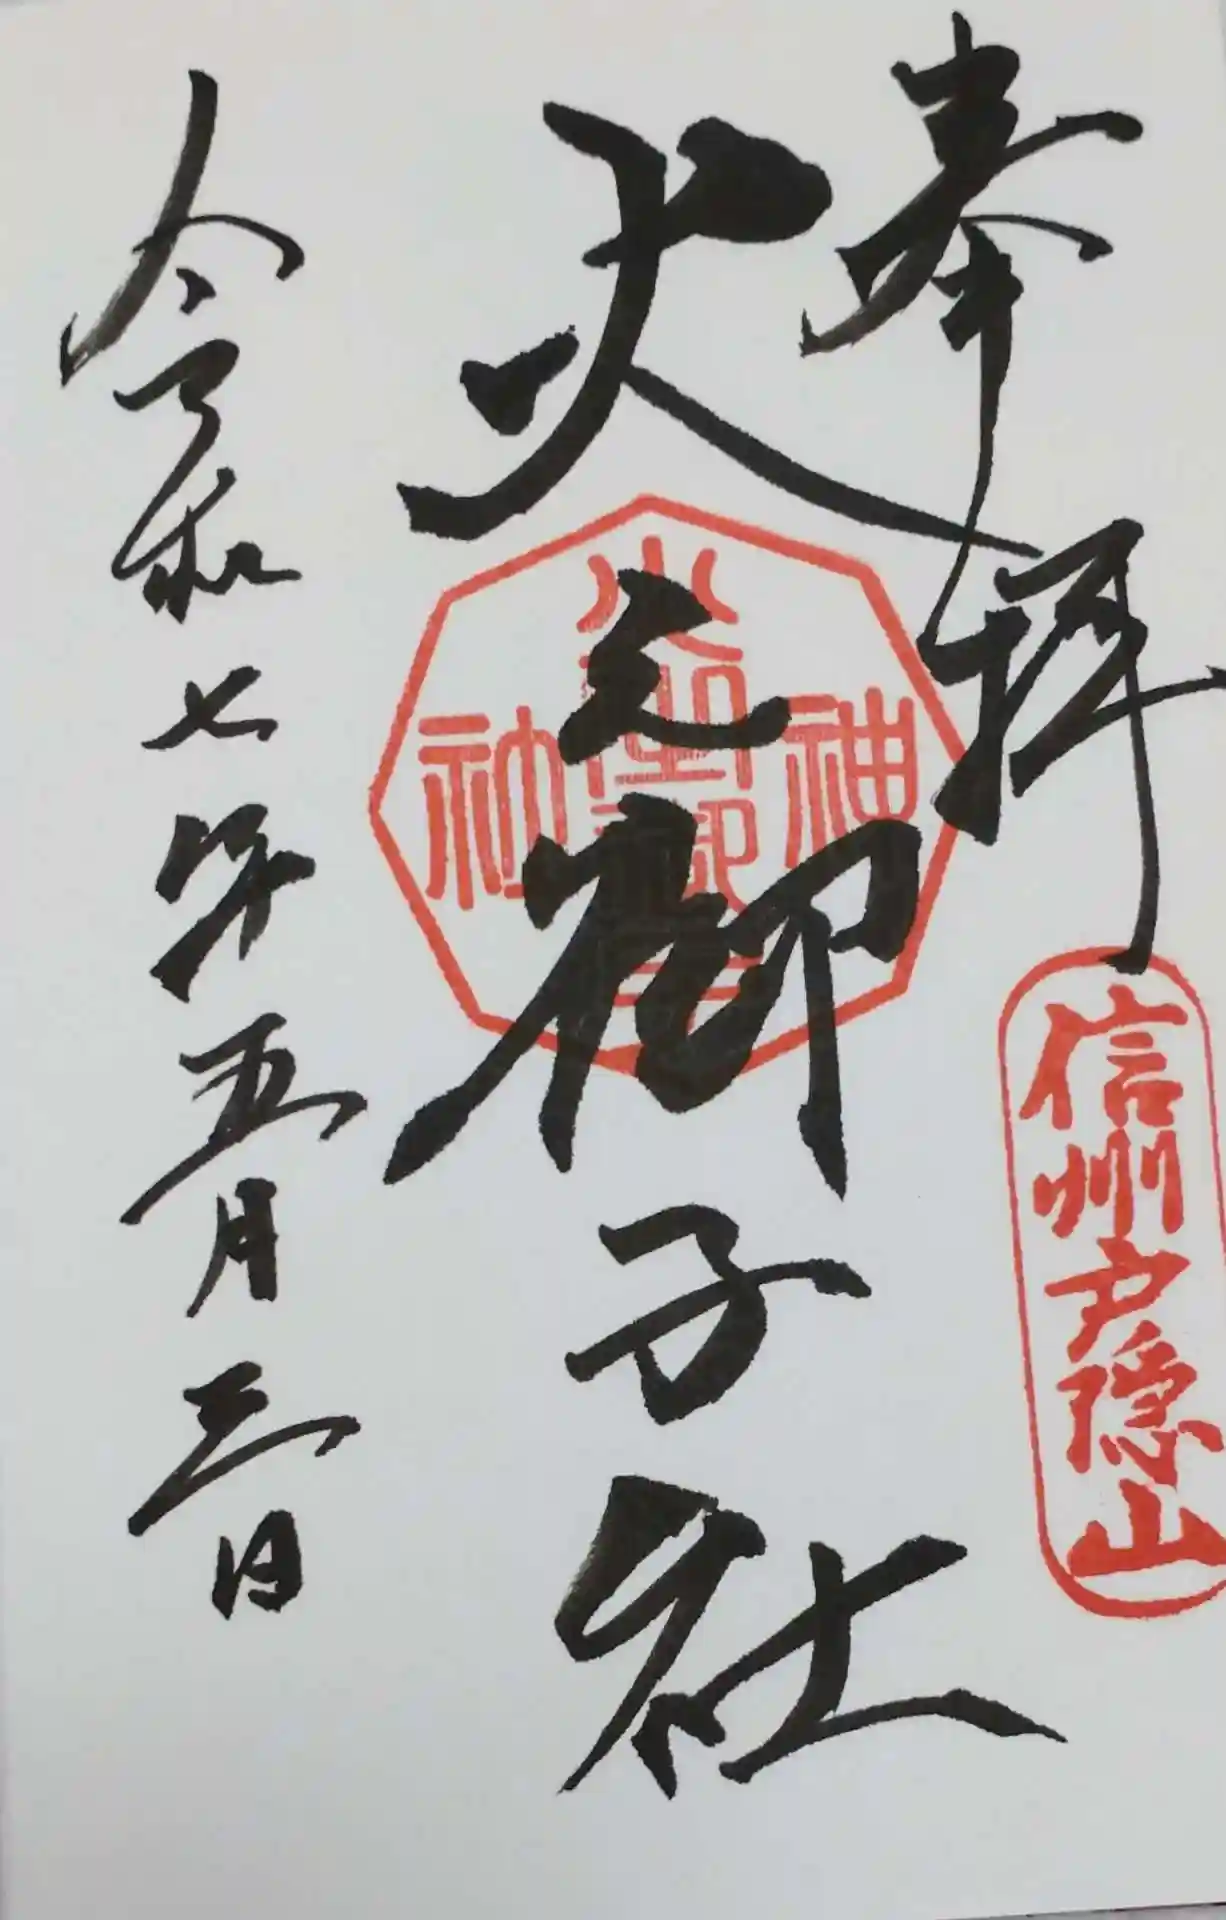 奉拝
信州戸隠山
火之御子社
令和七年五月三日